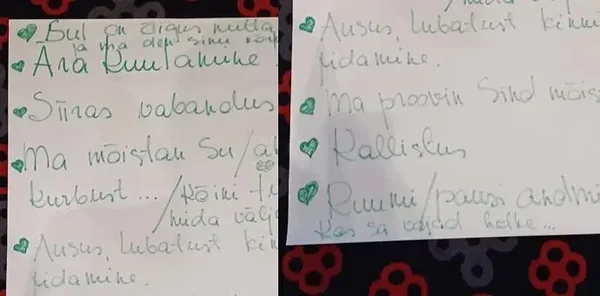 Sul on õigus nutta
ja ma olen sinu
Ära Kuulamine
Siiras vabandus
Ma mõistan Su /
kurbust ... / Kõiki
mida välja
Ausus, Lubadust
pidamine.
Ausus, Lubadust kinni
pidamine.
Ma proovin Sind mõis
Kallistus
Ruumi / pausi andmi
kas sa vajad hetke ...